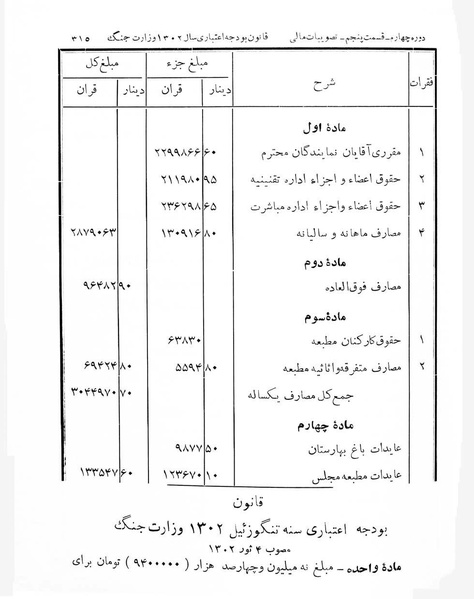 دوره چهارم ـ قسمت پنجم ـ تصویبات مالی قانون بودجه اعتباری سال ۱۳۰۲ وزارت جنگ ۳۱۵
فقرات شرح مبلغ جزء مبلغ کل
دینار قران دینار قران
مادهٔ اول
۱ مقرری آقایان نمایندگان محترم ۶۰ ۲۲۹۹۸۶۶
۲ حقوق اعضاء و اجزاء اداره تقنینیه ۹۵ ۲۱۱۹۸۰
۳ حقوق اعضاء واجزاء اداره مباشرت ۶۵ ۲۳۶۲۹۸
۴ مصارف ماهانه و سالیانه ۸۰ ۱۳۰۹۱۶ ۲۸۷۹۰۶۳
مادهٔ دوم
مصارف فوق‌العاده ۹۰ ۹۶۴۸۲
مادهٔ سوم
۱ حقوق کارکنان مطبعه ۶۳۸۳۰
۲ مصارف متفرقه واثاثیه مطبعه ۸۰ ۵۵۹۴ ۸۰ ۶۹۴۲۴
جمع کل مصارف یکساله ۷۰ ۳۰۴۴۹۷۰
مادهٔ چهارم
عایدات باغ بهارستان ۵۰ ۹۸۷۷
عایدات مطبعه مجلس ۱۰ ۱۲۳۶۷۰ ۶۰ ۱۳۳۵۴۷
قانون
بودجه اعتباری سنه تنگوزئیل ۱۳۰۲ وزارت جنگ
مصوب ۴ ثور ۱۳۰۲
مادهٔ واحده ـ مبلغ نه میلیون وچهارصد هزار (۹۴۰۰۰۰۰) تومان برای